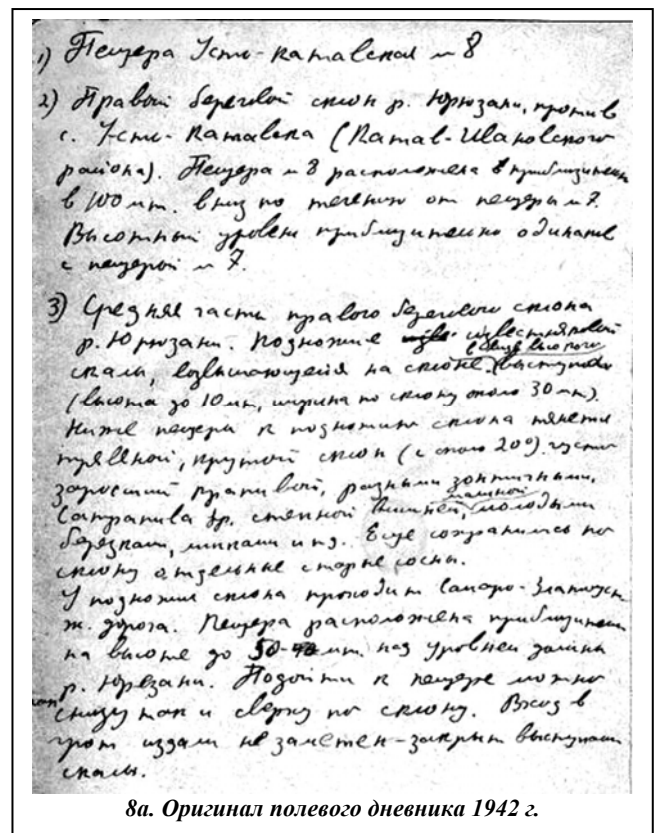 1) Пещера Усть-Катавская № 8
2) Правый береговой склон р. Юрюзани, против
с. Усть-Катавска (Катав-Ивановского
района). Пещера № 8 расположена в приблизительн
в 100 мт. вниз по течению от пещеры № 7.
Высотный уровень приблизительно одинаков
с пещерой № 7.
3) Средняя часть правого берегового склона
р. Юрюзани. Подножие известняковой
скалы, возвышающейся на склоне выступом
(высота до 10 мт, ширина по склону около 30 мт).
Ниже пещеры к подножию склона тянется
травяной, крутой склон (с около 20°) густо
заросший крапивой, разными зонтичными,
степной вишней, малиной, молодыми
березками, липками и т.д. Еще сохранились по
склону отдельные старые сосны.
У подножия склона проходит Самаро-Златоуст.
ж. дорога. Пещера расположена приблизительн
на высоте до 50 мт. над уровнем долины
р. Юрезани. Подойти к пещере можно
как снизу так и сверху по склону. Вход в
грот издали не заметен - закрыт выступом
скалы.
8а. Оригинал полевого дневника 1942 г.